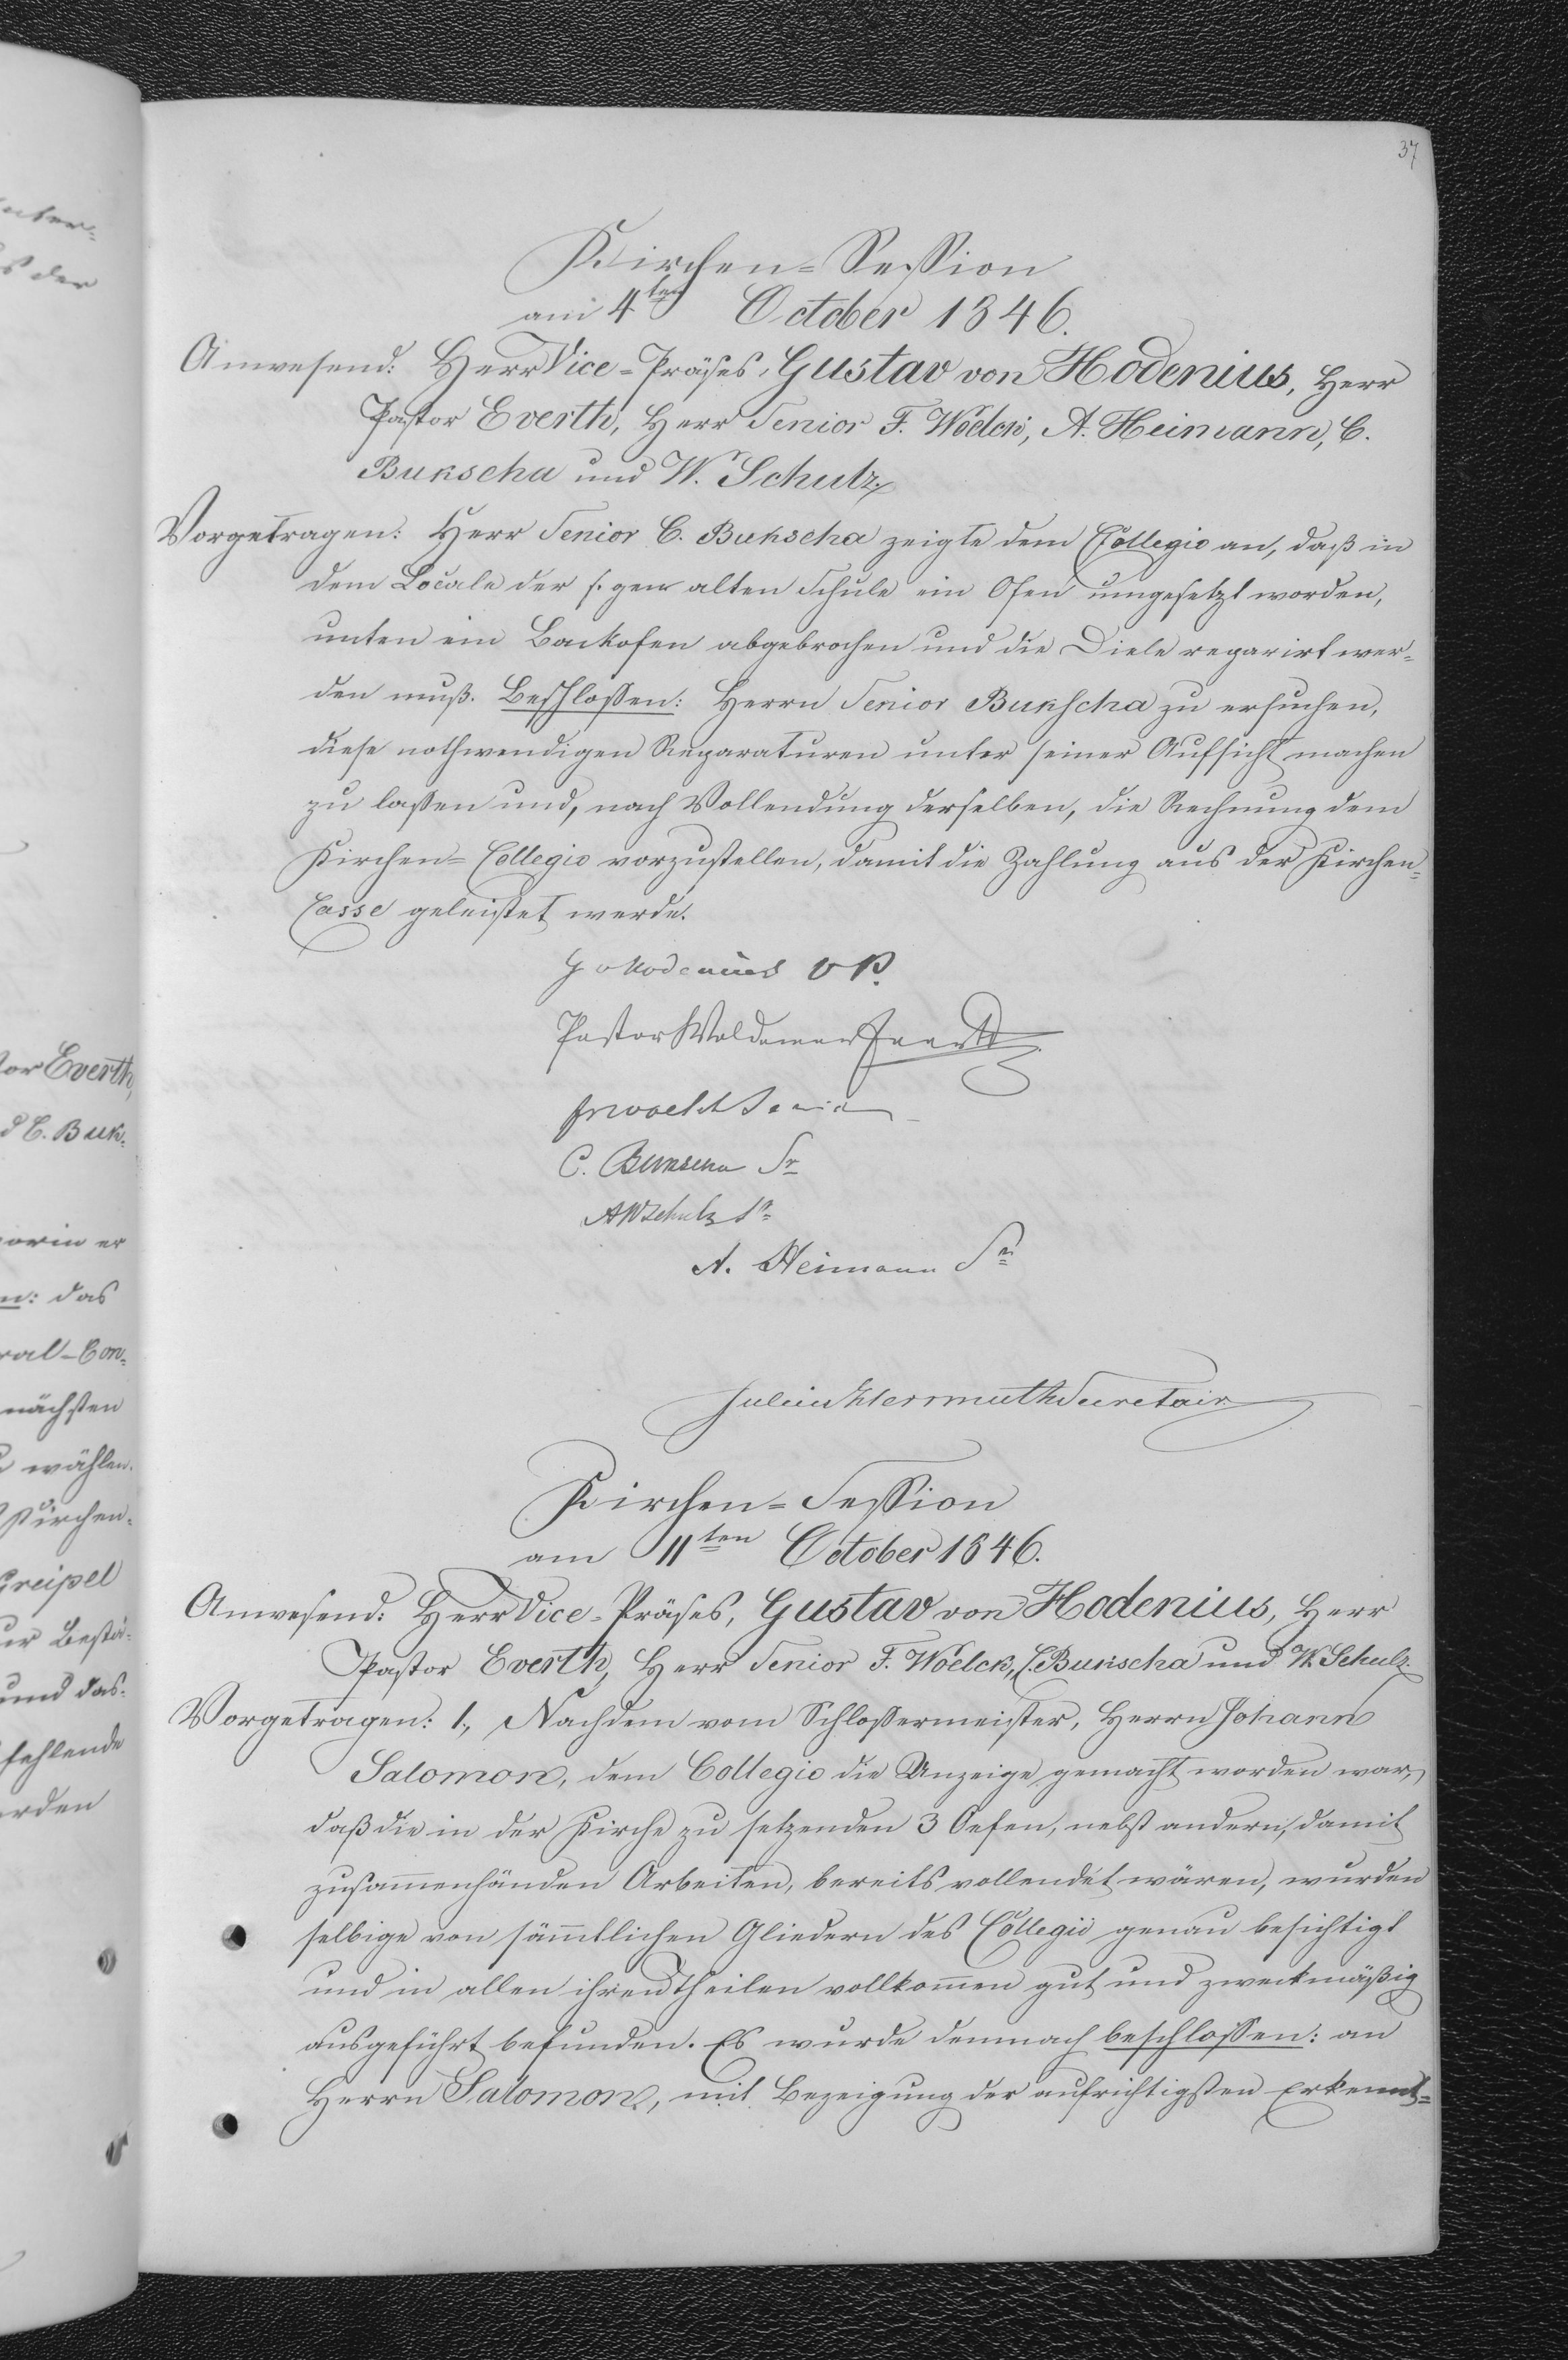 37
Kirchen=Session
am 4ten October 1846.
Anwesend: Herr Vice=Präses, Gustav von Hodenius, Herr
Pastor Everth, Herr Senior F. Woelck, A. Heimann, C.
Bukscha und W. Schulz.
Vorgetragen: Herr Senior C. Bukscha zeigte dem Collegio an, daß in
dem Locale der s. gen alten Schule ein Ofen umgesetzt worden,
unten ein Backofen abgebrochen und die Diele reparirt wer=
den muß. Beschlossen: Herrn Senior Bukscha zu ersuchen,
diese nothwendigen Reparaturen unter seiner Aufsicht machen
zu lassen und, nach Vollendung derselben, die Rechnung dem
Kirchen=Collegio vorzustellen, damit die Zahlung aus der Kirchen=
Casse geleistet werde.
G v Hodenius V P.
Pastor Woldemar Everth
F Woelck Senior
C. Bukscha Sr
A W Schulz Sr
A. Heimann Sr
Julius Hermuth Secretair
Kirchen=Session
am 11ten October 1846.
Anwesend: Herr Vice=Präses, Gustav von Hodenius, Herr
Pastor Everth, Herr Senior F. Woelck, C. Bukscha und W. Schulz.
Vorgetragen: 1., Nachdem vom Schlossermeister, Herrn Johann
Salomon, dem Collegio die Anzeige gemacht worden war,
daß die in der Kirche zu setzenden 3 Oefen, nebst andern, damit
zusammenhänden Arbeiten, bereits vollendet wären, wurden
selbige von sämmtlichen Gliedern des Collegii genau besichtigt
und in allen ihren Theilen vollkommen gut und zweckmäßig
ausgeführt befunden. Es wurde demnach beschlossen: an
Herrn Salomon, mit Bezeigung der aufrichtigsten Erkennt=